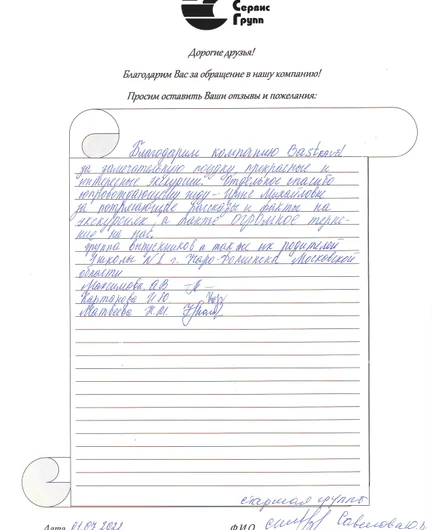 Сервис
Групп
Дорогие друзья!
Благодарим Вас за обращение в нашу компанию!
Просим оставить Ваши отзывы и пожелания:
Благодарим компанию Bastravel
за замечательную поездку, прекрасные и
интересные экскурсии. Отдельное спасибо
сопровождающему гиду – Инне Михайловне
за потрясающие рассказы и факты на
экскурсиях, а также огромное терпе-
ние на нас.
Группа выпускников а также их родителей
школы №1 г. Наро-Фоминска Московской
области
Максимова А.В.
Картакова И.Ю.
Матвеева Н.И.
старшая группы
Дата 01.07.2021 Ф.И.О. Савелова Ю.